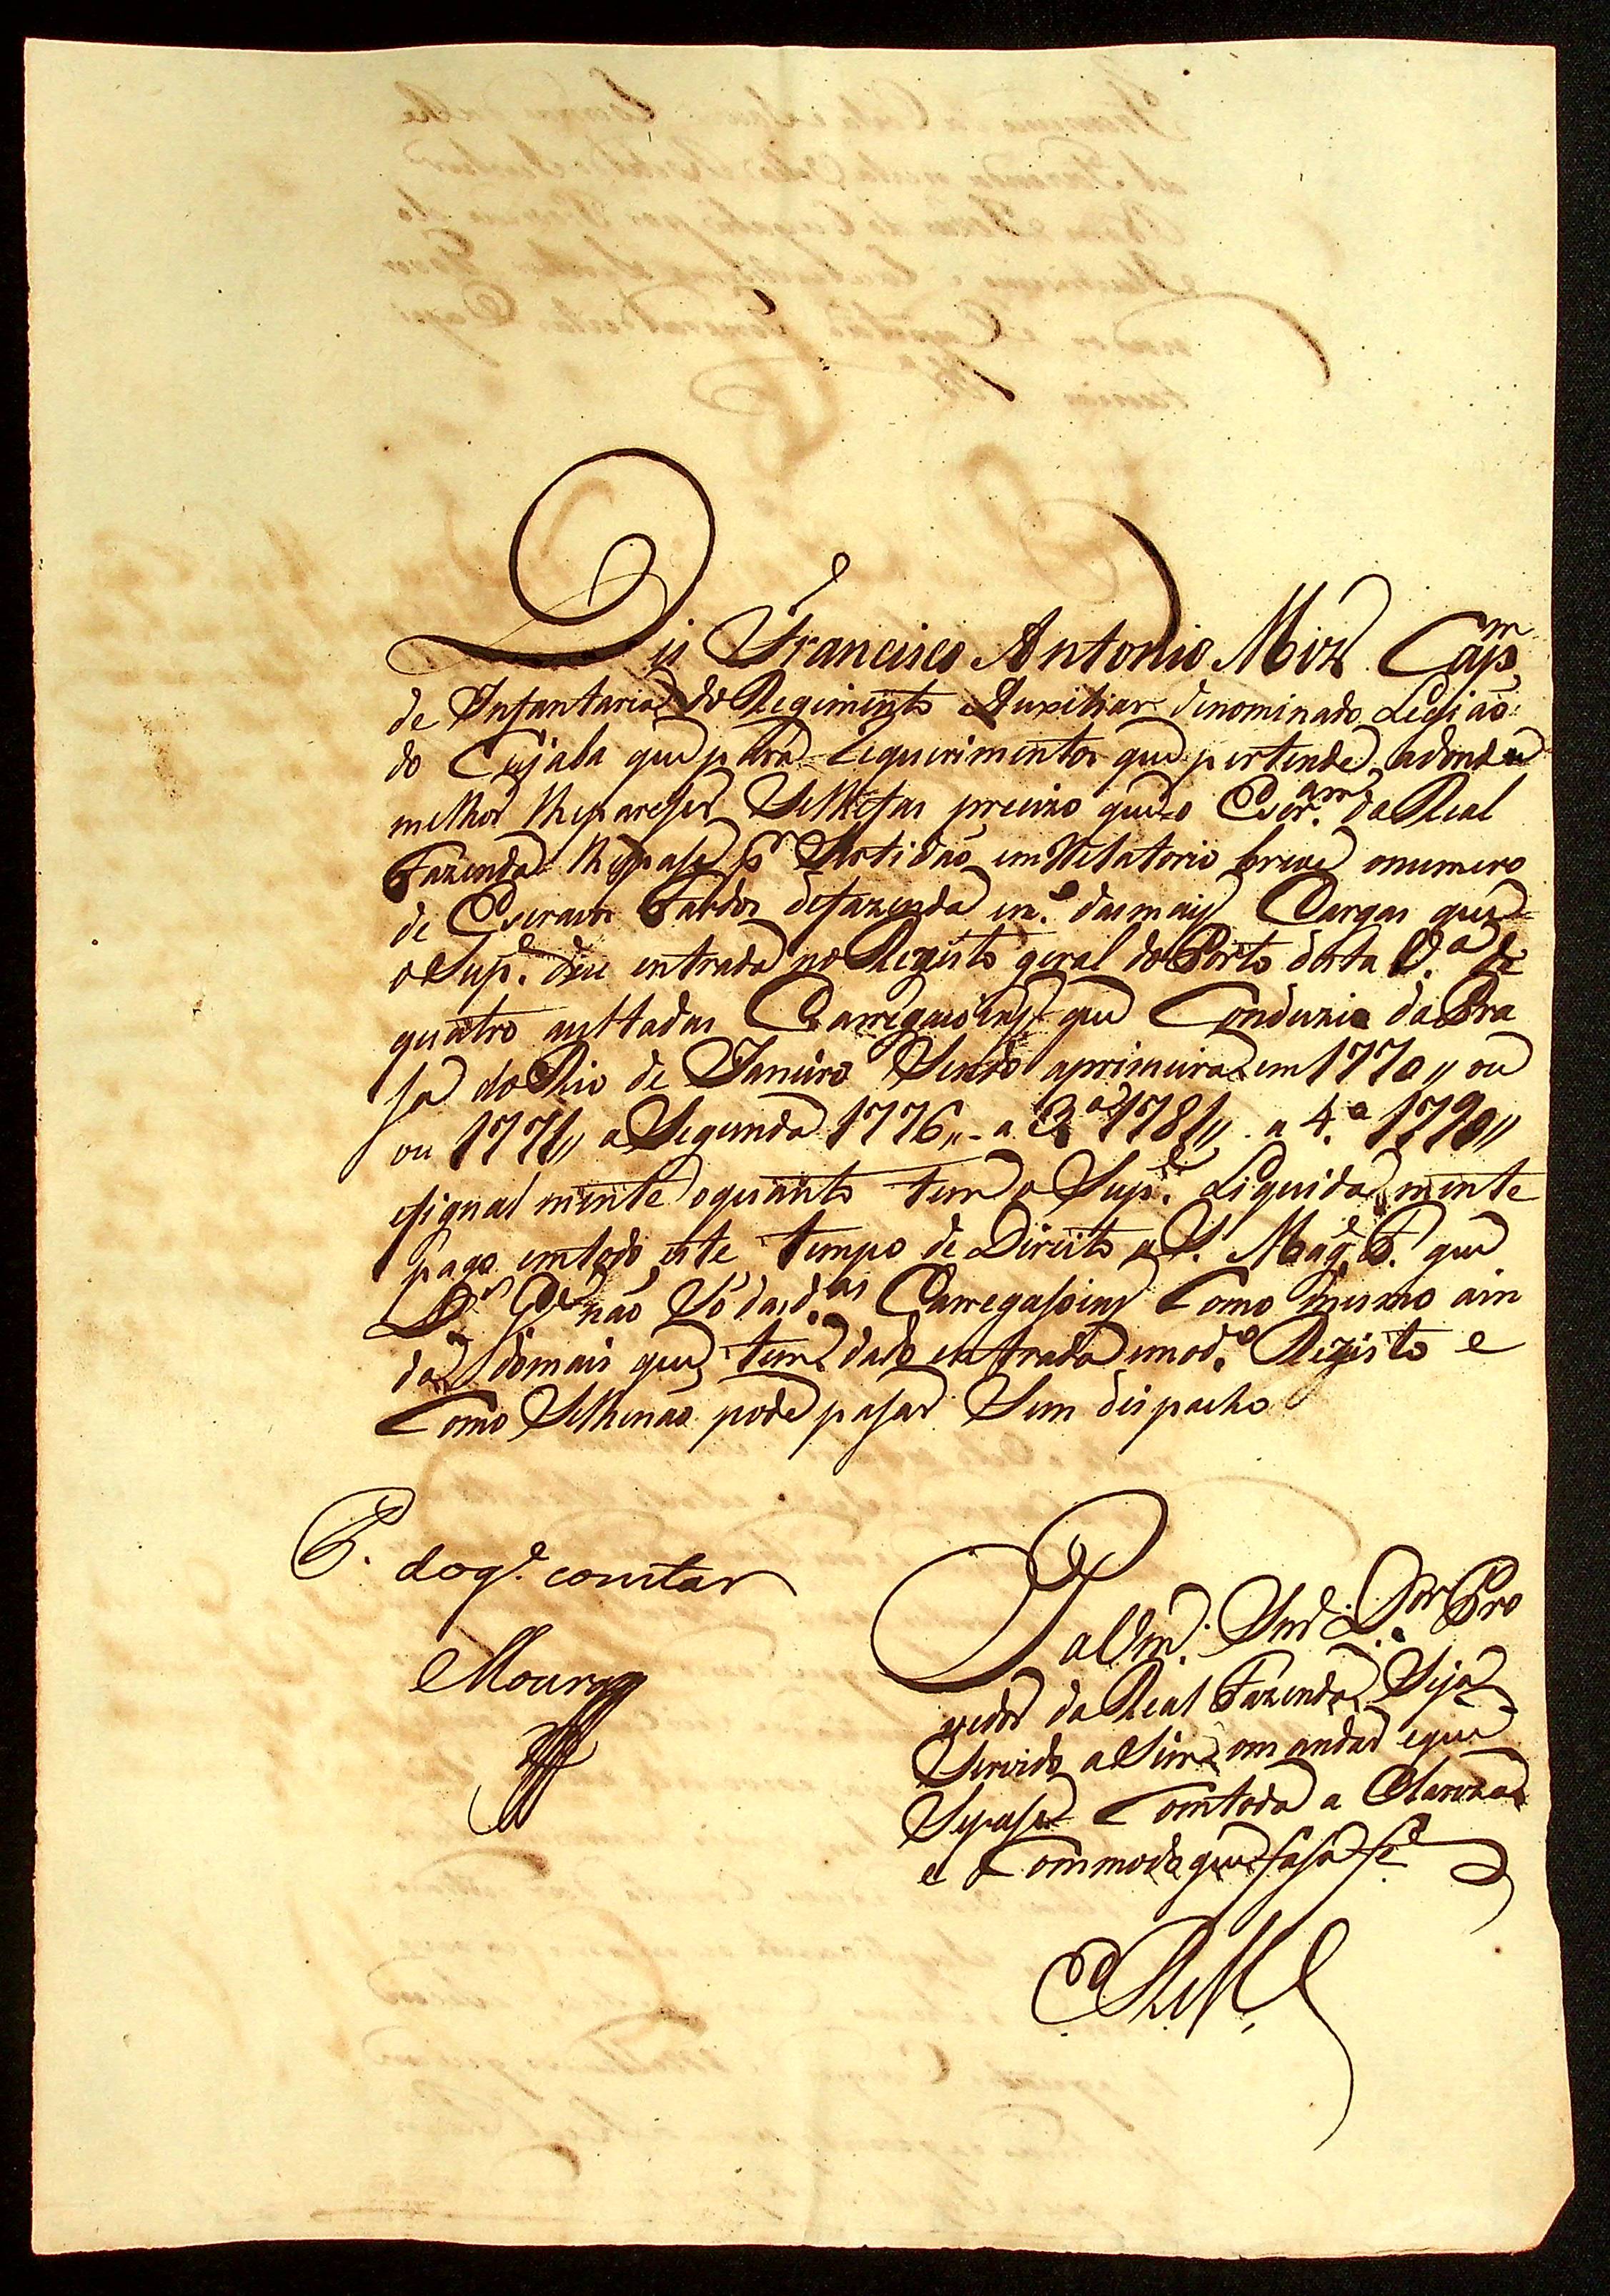 Dis Francisco Antonio Miz Cap.m
de Infantaria do Regimento Auxiliar denominado Legião
do Cujaba que para requerimentos que pertende, adonde
melhor lhe pareser Se lhe fas precizo que o Escr.am da Real
Fazenda lhe passe p.r Sertidão em Relatorio breve o numero
de Escravos Fardos de fazenda e m.s das mais Cargas que
o Sup.e deu entrada no Registo geral do Porto desta V.a de
quatro Carregasoins que Conduzia da Pra
sa do Rio de Janeiro Sendo a primeira em 1770,, ou
ou 1771,, a Segunda 1776,, - a 3.a 1781,, a 4.a 1790,,
e igual mente o quanto tem o Sup.e Liquida mente
pago em todo este tempo de Direito a S. Mag.e F. que
D.s G.e não Só das d.as Carregasoins Como mesmo ain
da demais que tem dado entrada em o d.o Registo e
Como Se lhe não pode pasar Sem dispacho
P. do q.e constar
Moura
Pa Vm.ce Snr. D.or Pro
vedor da Real Fazenda Seja
Servido a Sim o mandar e que
Se passe Com toda a Clareza
e Com modo que fasa fé
E. R. M.